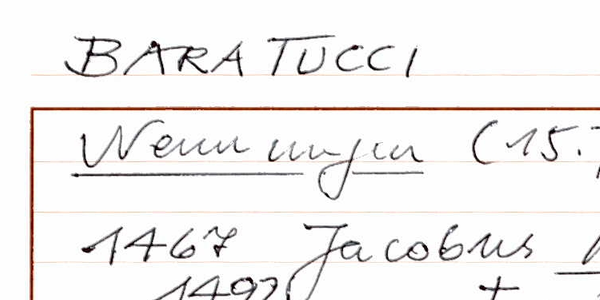 BARATUCCI
Nennungen (15.
1467 Jacobus
1492